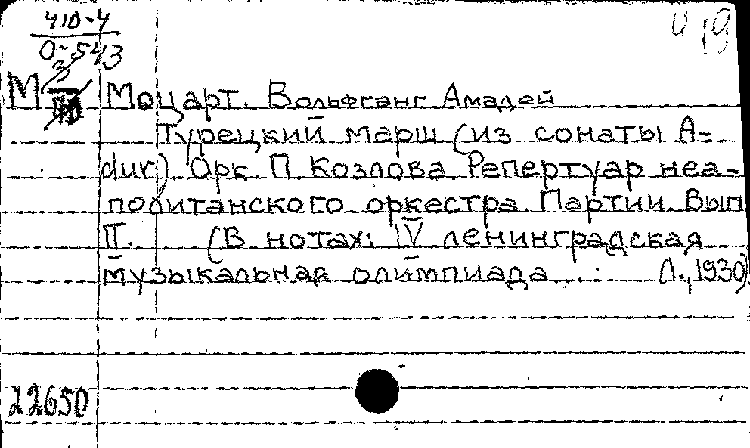 410-4
0-543
М 3
Моцарт. Вольфганг Амадей
Турецкий марш (из сонаты A-
dur). Орк. П. Козлова. Репертуар неа-
политанского оркестра. Партии. Вып
II. (В нотах: IV ленинградская
музыкальная олимпиада ...: Л., 1930)
22650